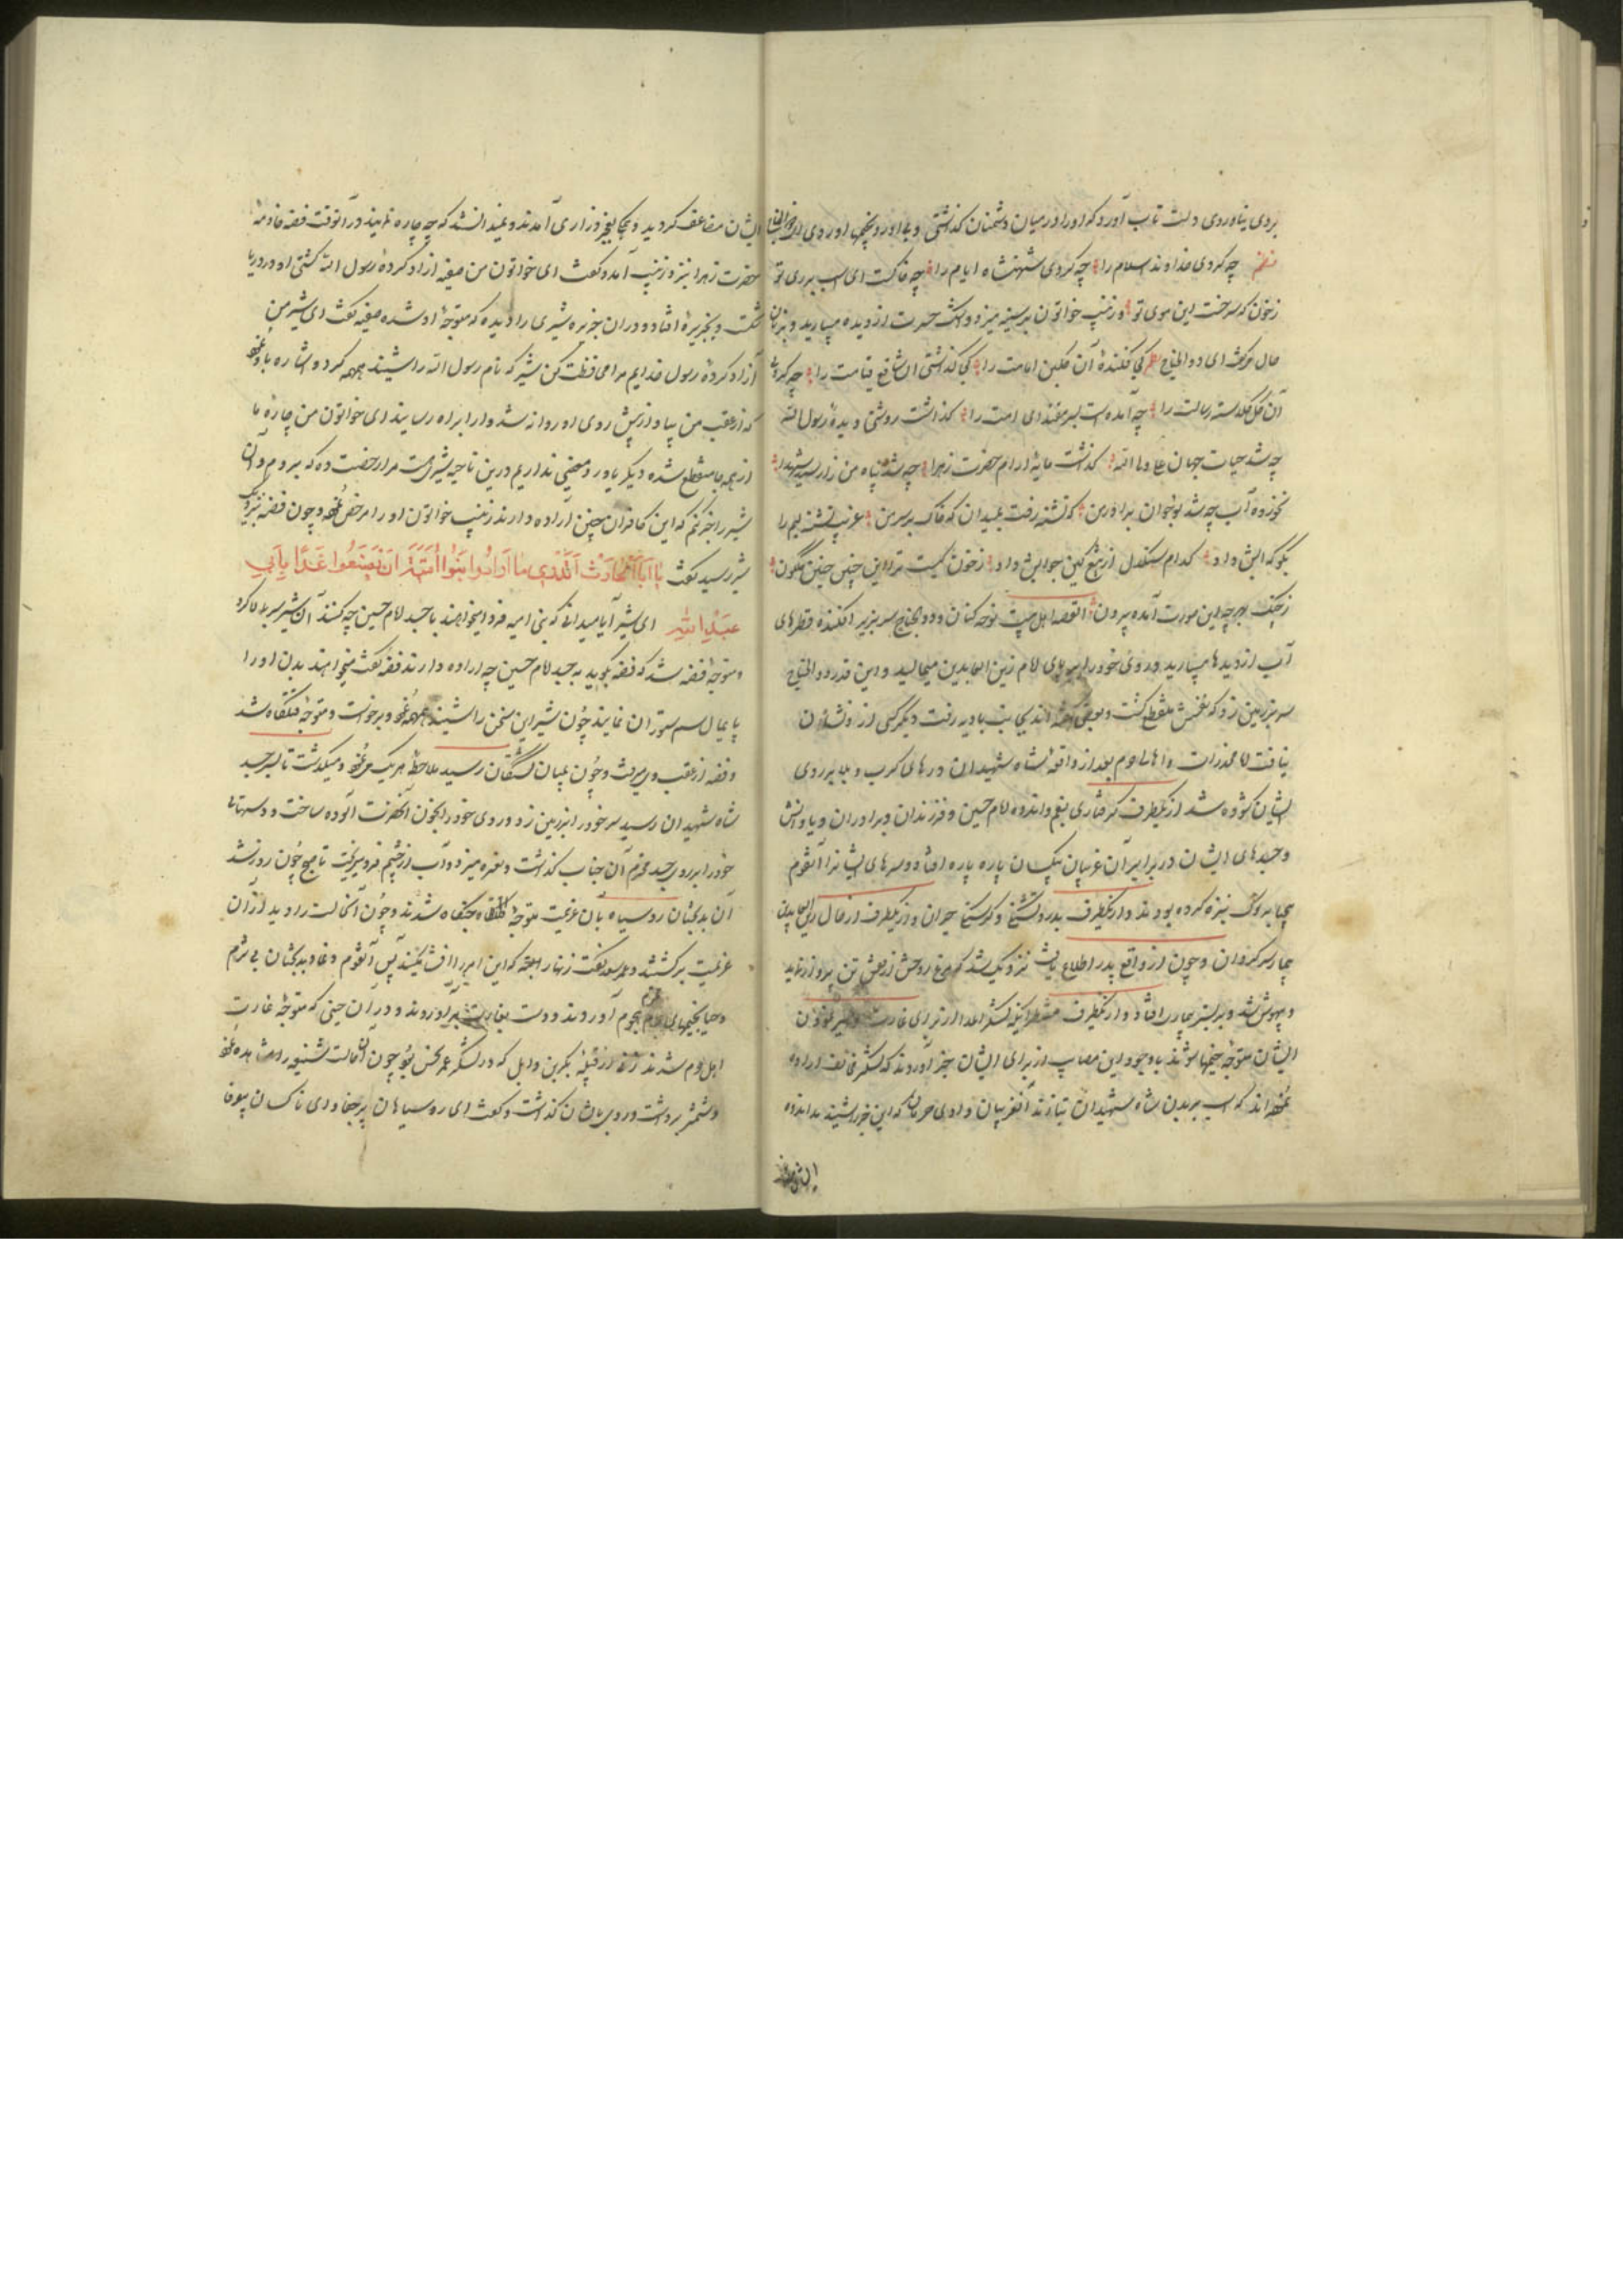 بردی نیاوردی دلت تاب آورد که اورا در میان دشمنان گذاشتی
چه کردی خداوند اسلام را چه کردی شهنشاه ایام را چه خاکست ای اسب بر روی تو
ز خون که سرخست این موی تو و زینب خواتون بر سینه میزد و اشک حسرت از دیده میبارید و بزبان
حال میگفت ای ذو الجناح کی فکنده آن رکن امامت را کی گذاشتی آن شافع قیامت را چه کردی
آن گل گلدسته رسالت را چه آمده است بسر مقتدای امت را کذاشت روشنی دیده رسول الله
چه شد حیات جهان علی ولی الله کذشت مایه ارام حضرت زهرا چه شد پناه من زار سید شهدا
نخورده آب چه شد نوجوان برادر من که تشنه رفت بمیدان که خاک بر سر من غریب تشنه لبم را
بگو که آبش داد کدام سنکدل از تیغ کین جوابش داد ز خون کیست ترا این چنین جبین گلگون
ز جنک بهر چه این صورت آمده بیرون القصه اهل بیت نوحه کنان و ذو الجناح سر بزیر افکنده قطرهای
آب از دیدها میبارید و روی خود را بر پای امام زین العابدین میمالید و این قدر ذو الجناح
سر بر زمین زد که نفسش منقطع گشت و بعضی گفته اند بجانب بادیه رفت دیگر کسی از و نشان
نیافت اما مخدرات و اهل حرم بعد از واقعه شاه شهیدان درهای کرب و بلا بر روی
ایشان کشوده شد از یکطرف گرفتاری بغم و اندوه امام حسین و فرزندان و برادران و یاورانش
و جسدهای ایشان در برابر آن غریبان بیکسان پاره پاره افتاده و سرهای ایشانرا آنقوم
بیحیا بر نوک نیزه کرده بودند و از یکطرف بدرد تشنگی و گرسنگی حیران و از یکطرف از حال زین العابدین
بیمار سرگردان و چون از واقع پدر اطلاع یافت نزدیک شد که مرغ روحش از قفس تن پرواز نماید
و بیهوش شد و بر بستر بیماری افتاد و از یکطرف منتظر اینکه لشکر اعدا از برای غارت و اسیر نمودن
ایشان متوجه خیمها شوند با وجود این مصایب از برای ایشان خبر آوردند که لشکر مخالف اراده
نموده اند که اسب بر بدن شاه شهیدان بتازند آنغریبان وادی حرمان که این خبر شنیدند اندوه
ایشان مضاعف گردید و همگی بعجز و زاری آمدند و نمیدانستند که چه چاره نمایند در آنوقت فضه خادمه
حضرت زهرا بنزد زینب آمد و گفت ای خواتون من سفینه ازاد کرده رسول الله کشتی او در دریا
شکست و بجزیره افتاد و در ان جزیره شیری را دیده که متوجه او شده سفینه گفت ای شیر من
آزاد کرده رسول خدایم مرا محافظت کن شیر که نام رسول الله را شنید همهمه کرد و اشاره باو نمود
که از عقب من بیا و از پیش روی او روانه شد و او را براه رسانید ای خواتون من چاره ما
از همه جا منقطع شده و دیگر یاور و معینی نداریم درین ناحیه شیر است مرا رخصت ده که بروم و آن
شیر را خبر کنم که این کافران چنین اراده دارند زینب خواتون او را مرخص نمود و چون فضه بنزدیک
شیر رسید گفت یا ابا الحارث اتدری ما ارادوا بنوا امیة ان یصنعوا غدا بابی
عبد الله ای شیر آیا میدانی که بنی امیه فردا میخواهند با جسد امام حسین چه کنند آن شیر سر بالا کرد
و متوجه فضه شد که فضه بگوید به جسد امام حسین چه اراده دارند فضه گفت میخواهند بدن او را
پایمال سم ستوران نمایند چون شیر این سخن را شنید همهمه نمود و برخواست و متوجه قتلگاه شد
و فضه از عقب وی میرفت و چون بمیان کشتگان رسید ملاحظه هر یک می نمود و میگذشت تا بسر جسد
شاه شهیدان رسید سر خود را بر زمین زد و روی خود را بخون آنحضرت آلوده ساخت و دستهای
خود را بر روی جسد محترم آن جناب گذاشت و نعره میزد و آب از چشم فرو میریخت تا صبح چون روز شد
آن بدبختان روسیاه بآن عزیمت متوجه جنگگاه شدند و چون آنحالت را دیدند از آن
عزیمت برگشتند و عمر سعد گفت زنهار که این امر را افشا مکنید پس آنقوم دغا و بدبختان بی شرم
و حیا بخیمهای حرم محترم هجوم آوردند و دست بغارت برآوردند و در آن حینی که متوجه غارت
اهل حرم شدند زنی از قبیله بکر بن وایل که در لشگر عمر نحس بود چون آن حالت شنیع را مشاهده نمود
و شمشیر برداشت و رو بایشان گذاشت و گفت ای روسیاهان پر جفا و ای ناکسان بیوفا